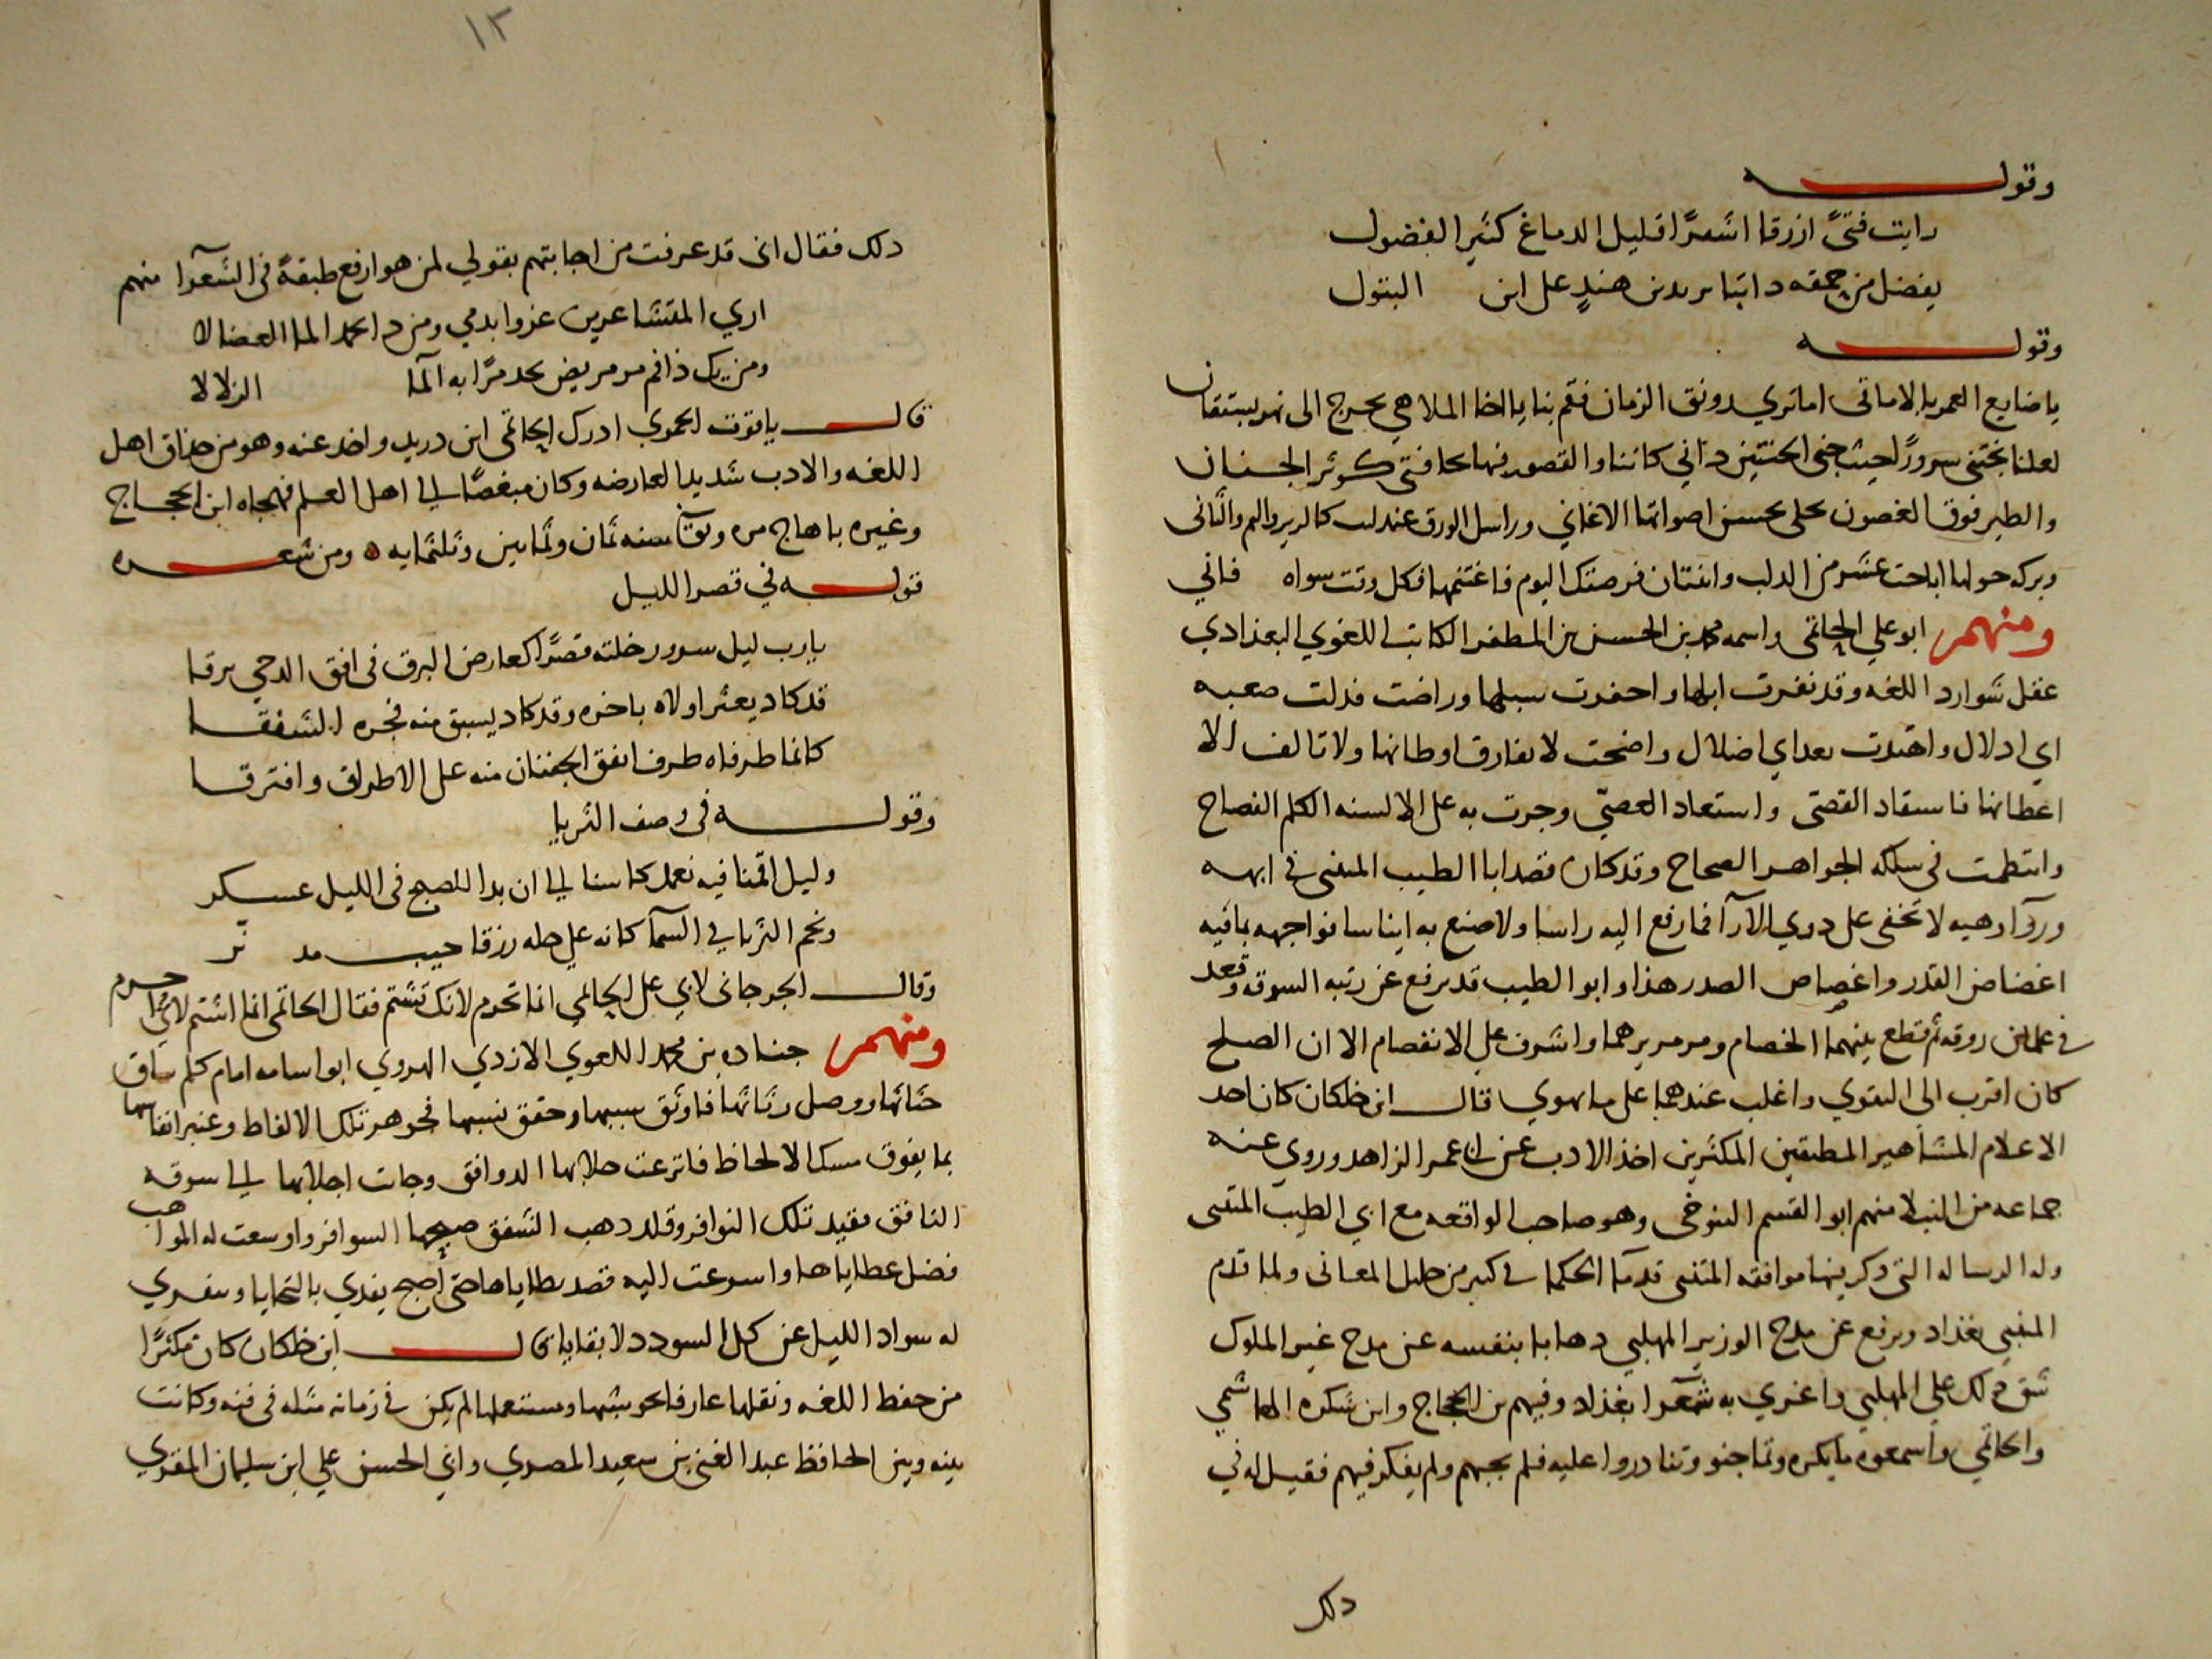 وقوله
رايت فتىً ازرقا اشقرًا قليل الدماغ كثير الفضول
يفضل من حمقه دائبا يزيد بن هندٍ على ابن البتول
وقوله
يا ضايع العمر بالاماني اما تري رونق الزمان فقم بنا يا اخا الملاهي نخرج الى نهر بستقان
لعلنا نجتني سرورًا حيث جنى الجنتين داني كاننا والقصور فيها بحافتي كوثر الجنان
والطير فوق الغصون تحكي بحسن اصواتها الاغاني وراسل الورق عندليب كالزير والبم والثاني
وبركه حولها اناخت عشر من الدلب واثنتان فرصتك اليوم فاغتنمها فكل وقت سواه فاني
ومنهم ابو علي الحاتمي واسمه محمد بن الحسن بن المظفر الكاتب اللغوي البغدادي
عقل شوارد اللغه وقد نفرت ابلها واحفرت سبلها وراضت فذلت صعبه
اي اذلال واهتدت بعد اي اضلال واضحت لا تفارق اوطانها ولا تالف الا
اعطانها فاستقاد القصي واستعاد العصيّ وجرت به على الالسنه الكلم الفصاح
وانتظمت في سلكه الجواهر الصحاح وقد كان قصد ابا الطيب المتنبي في ابهه
وروآ وهيه لا تخفى على ذوي الآرآ فما رفع اليه راسا ولا صنع به ايناسا فواجهه بما فيه
اغضاض القدر واغصاص الصدر هذا وابو الطيب قد ترفع عن رتبه السوقه وقعد
في روقه ثم قطع بينهما الخصام ومرمر واشرف على الانفصام الا ان الصلح
كان اقرب الى التقوي واغلب عندهما على ما يهوي قال ابن خلكان كان احد
الاعلام المشاهير المطبقين المكثرين اخذ الادب عن ابي عمر الزاهد وروي عنه
جماعه من النبلا منهم ابو القسم التنوخي وهو صاحب الواقعه مع ابي الطيب المتنبي
وله الرساله التي ذكر فيها موافقه المتنبي قدمآ الحكما في كثير من المعاني ولما قدم
المتنبي بغداد وترفع عن مدح الوزير المهلبي ذهابا بنفسه عن مدح غير الملوك
شق ذلك على المهلبي واغري به شعرآ بغداد وفيهم بن الحجاج وابن سكره الهاشمي
والحاتمي واسمعوه ما يكره وتماجنو وتنادروا عليه فلم يجبهم ولم يفكر فيهم فقيل له في
ذلك
١٣
ذلك فقال اني قد عرفت من اجابتهم بقولي لمن هو ارفع طبقةً في الشعرآ منهم
اري المتشاعرين غروا بذمي ومن ذا يحمد الدا العضالا
ومن يك ذا فم مر مريض يجد مرًا به المآ الزلالا
قال ياقوت الحموي ادرك الحاتمي ابن دريد واخذ عنه وهو من حذاق اهل
اللغه والادب شديد العارضه وكان مبغضًا الي اهل العلم فهجاه ابن الحجاج
وغيره باهاج مره وتوفي سنه ثمان وثمانين وثلثمايه ومن شعره
قوله في قصر الليل
يا رب ليل سرور خلته قصرًا كعارض البرق في افق الدجي برقا
قد كاد يعثر اولاه باخره وقد كاد يسبق منه فجره الشفقا
كانما طرفاه طرف اتفق الجفنان منه على الاطراف وافترقا
وقوله في وصف الثريا
وليل اقمنا فيه نعمل كاسنا الي ان بدا للصبح في الليل عسكر
ونجم الثريا في السمآ كانه على حله زرقا جيب مدنّر
وقال الجرجاني لابي علي الحاتمي انما تحرم لانك تشتم فقال الحاتمي انما اشتم لاني احرم
ومنهم جناده بن محمد اللغوي الازدي الهروي ابو اسامه امام كلم ساق
حثاثها ووصل رثاثها فاوثق سببها وحقق نسبها فجوهر تلك الالفاظ وعنبر انفاسها
بما يفوق مسك الالحاظ فاترعت حلابها الدوافق وجات اجلابها الي سوقه
النافق مقيد تلك النوافر وقلد ذهب الشفق صبحها السوافر واوسعت له المواهب
فضل عطاياها واسرعت اليه قصد مطاياها حتى اصبح يفدي بالتحايا ويفدي
له سواد الليل عن كل السودد لا بقايا قال ابن خلكان كان مكثرًا
من حفظ اللغه ونقلها عارفا بحوشيها ومستعملها لم يكن في زمانه مثله في فنه وكانت
بينه وبين الحافظ عبد الغني بن سعيد المصري وابي الحسن علي ابن سليمان المقري